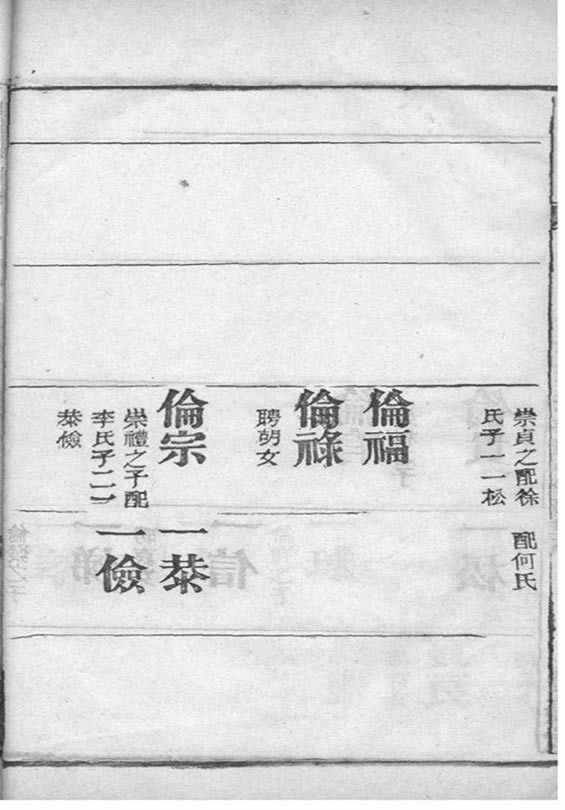 崇貞之配徐
氏子一一松
倫福
倫祿
聘胡女
倫宗
崇禮之子配
李氏子二一
恭儉
配何氏
一恭
一儉